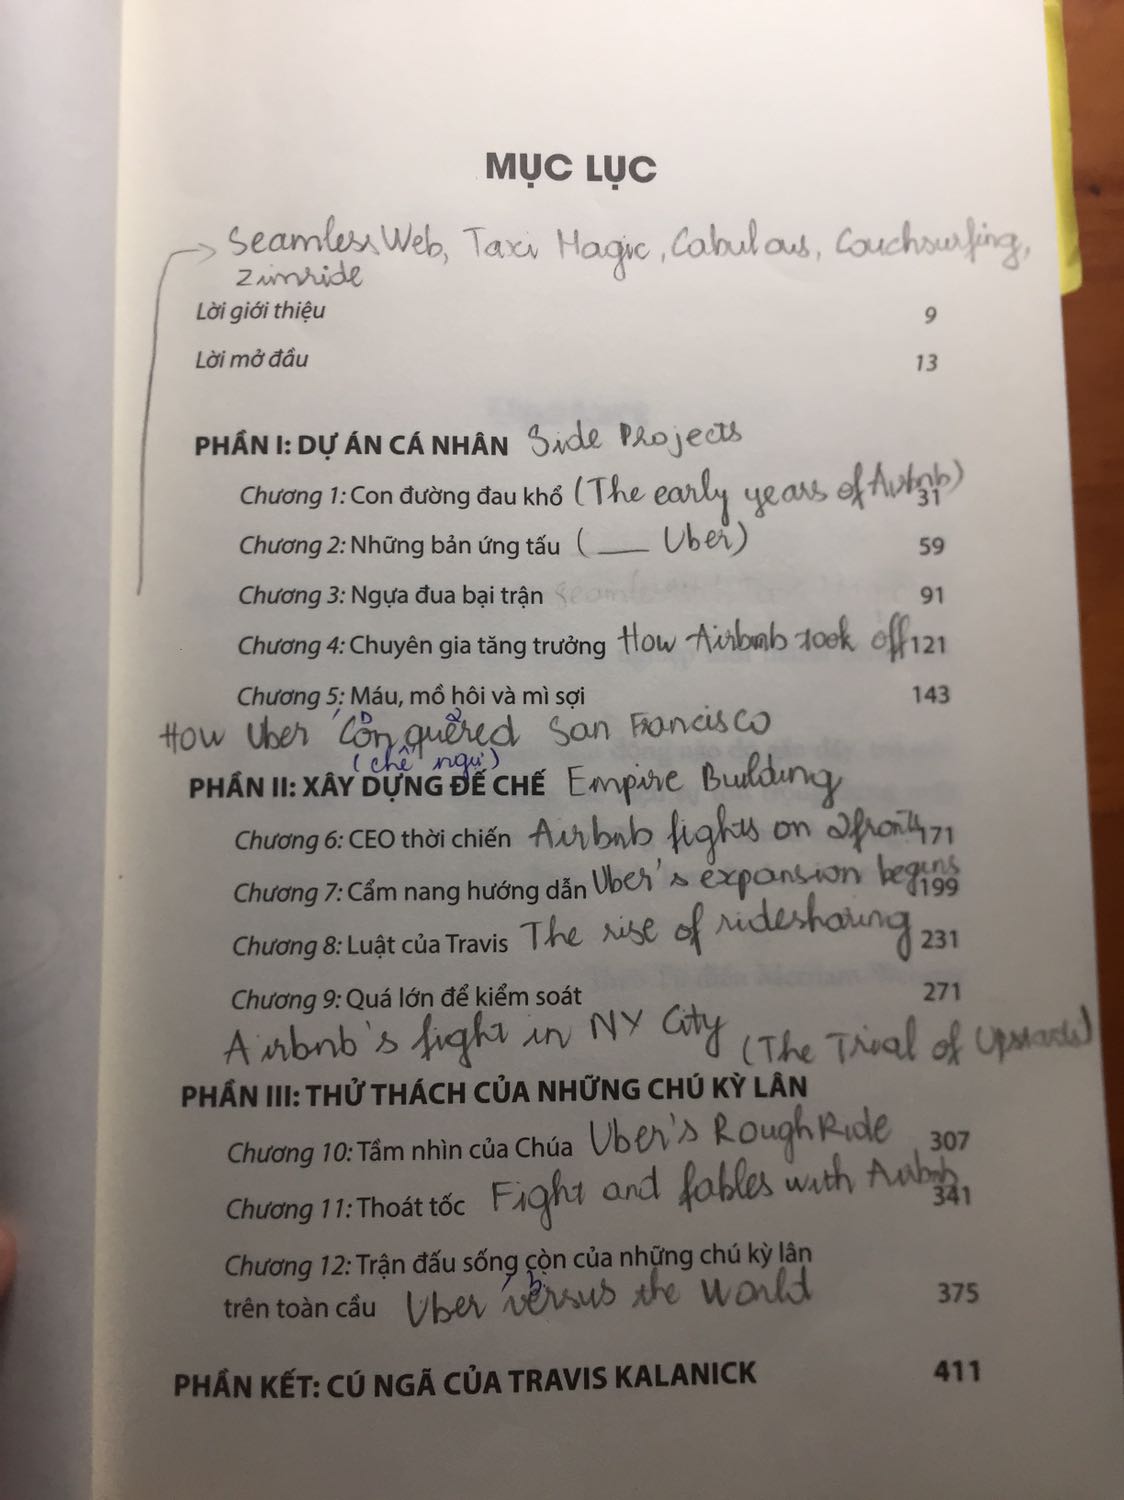 MỤC LỤC
SeamlessWeb, Taxi Magic, Cabulous, Couchsurfing,
Zimride
Lời giới thiệu 9
Lời mở đầu 13
PHẦN I: DỰ ÁN CÁ NHÂN Side Projects
Chương 1: Con đường đau khổ (The early years of Airbnb) 31
Chương 2: Những bản ứng tấu ( ___ Uber) 59
Chương 3: Ngựa đua bại trận 91
Chương 4: Chuyên gia tăng trưởng How Airbnb took off 121
Chương 5: Máu, mồ hôi và mì sợi 143
How Uber conquered San Francisco
(chế ngự)
PHẦN II: XÂY DỰNG ĐẾ CHẾ Empire Building
Chương 6: CEO thời chiến Airbnb fights on 2 fronts 171
Chương 7: Cẩm nang hướng dẫn Uber's expansion begins 199
Chương 8: Luật của Travis The rise of ridesharing 231
Chương 9: Quá lớn để kiểm soát 271
Airbnb's fight in NY City (The Trial of Upstarts)
PHẦN III: THỬ THÁCH CỦA NHỮNG CHÚ KỲ LÂN
Chương 10: Tầm nhìn của Chúa Uber's Rough Ride 307
Chương 11: Thoát tốc Fight and fables with Airbnb 341
Chương 12: Trận đấu sống còn của những chú kỳ lân
trên toàn cầu Uber versus the World 375
PHẦN KẾT: CÚ NGÃ CỦA TRAVIS KALANICK 411